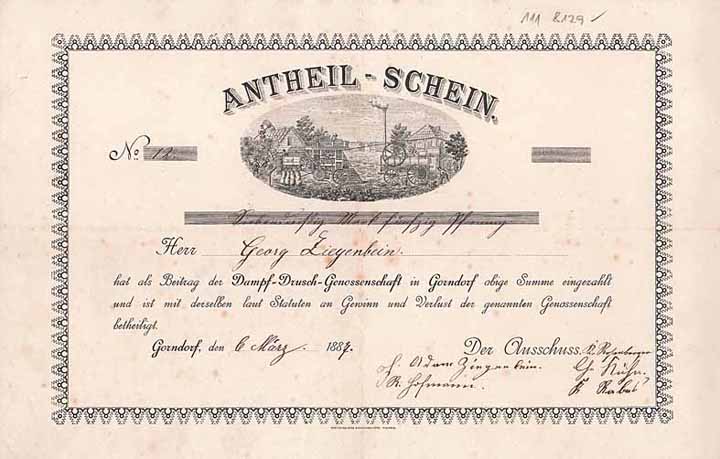 111 8129 ✓
ANTHEIL - SCHEIN.
No 12.
Mark fünfzig Pfennig
Herr Georg Ziegenbein.
hat als Beitrag der Dampf-Drusch-Genossenschaft in Gorndorf obige Summe eingezahlt
und ist mit derselben laut Statuten an Gewinn und Verlust der genannten Genossenschaft
betheiligt.
Gorndorf, den 6 März. 1887.
Der Ausschuss.
Adam Ziegenbein.
R. Hofmann.